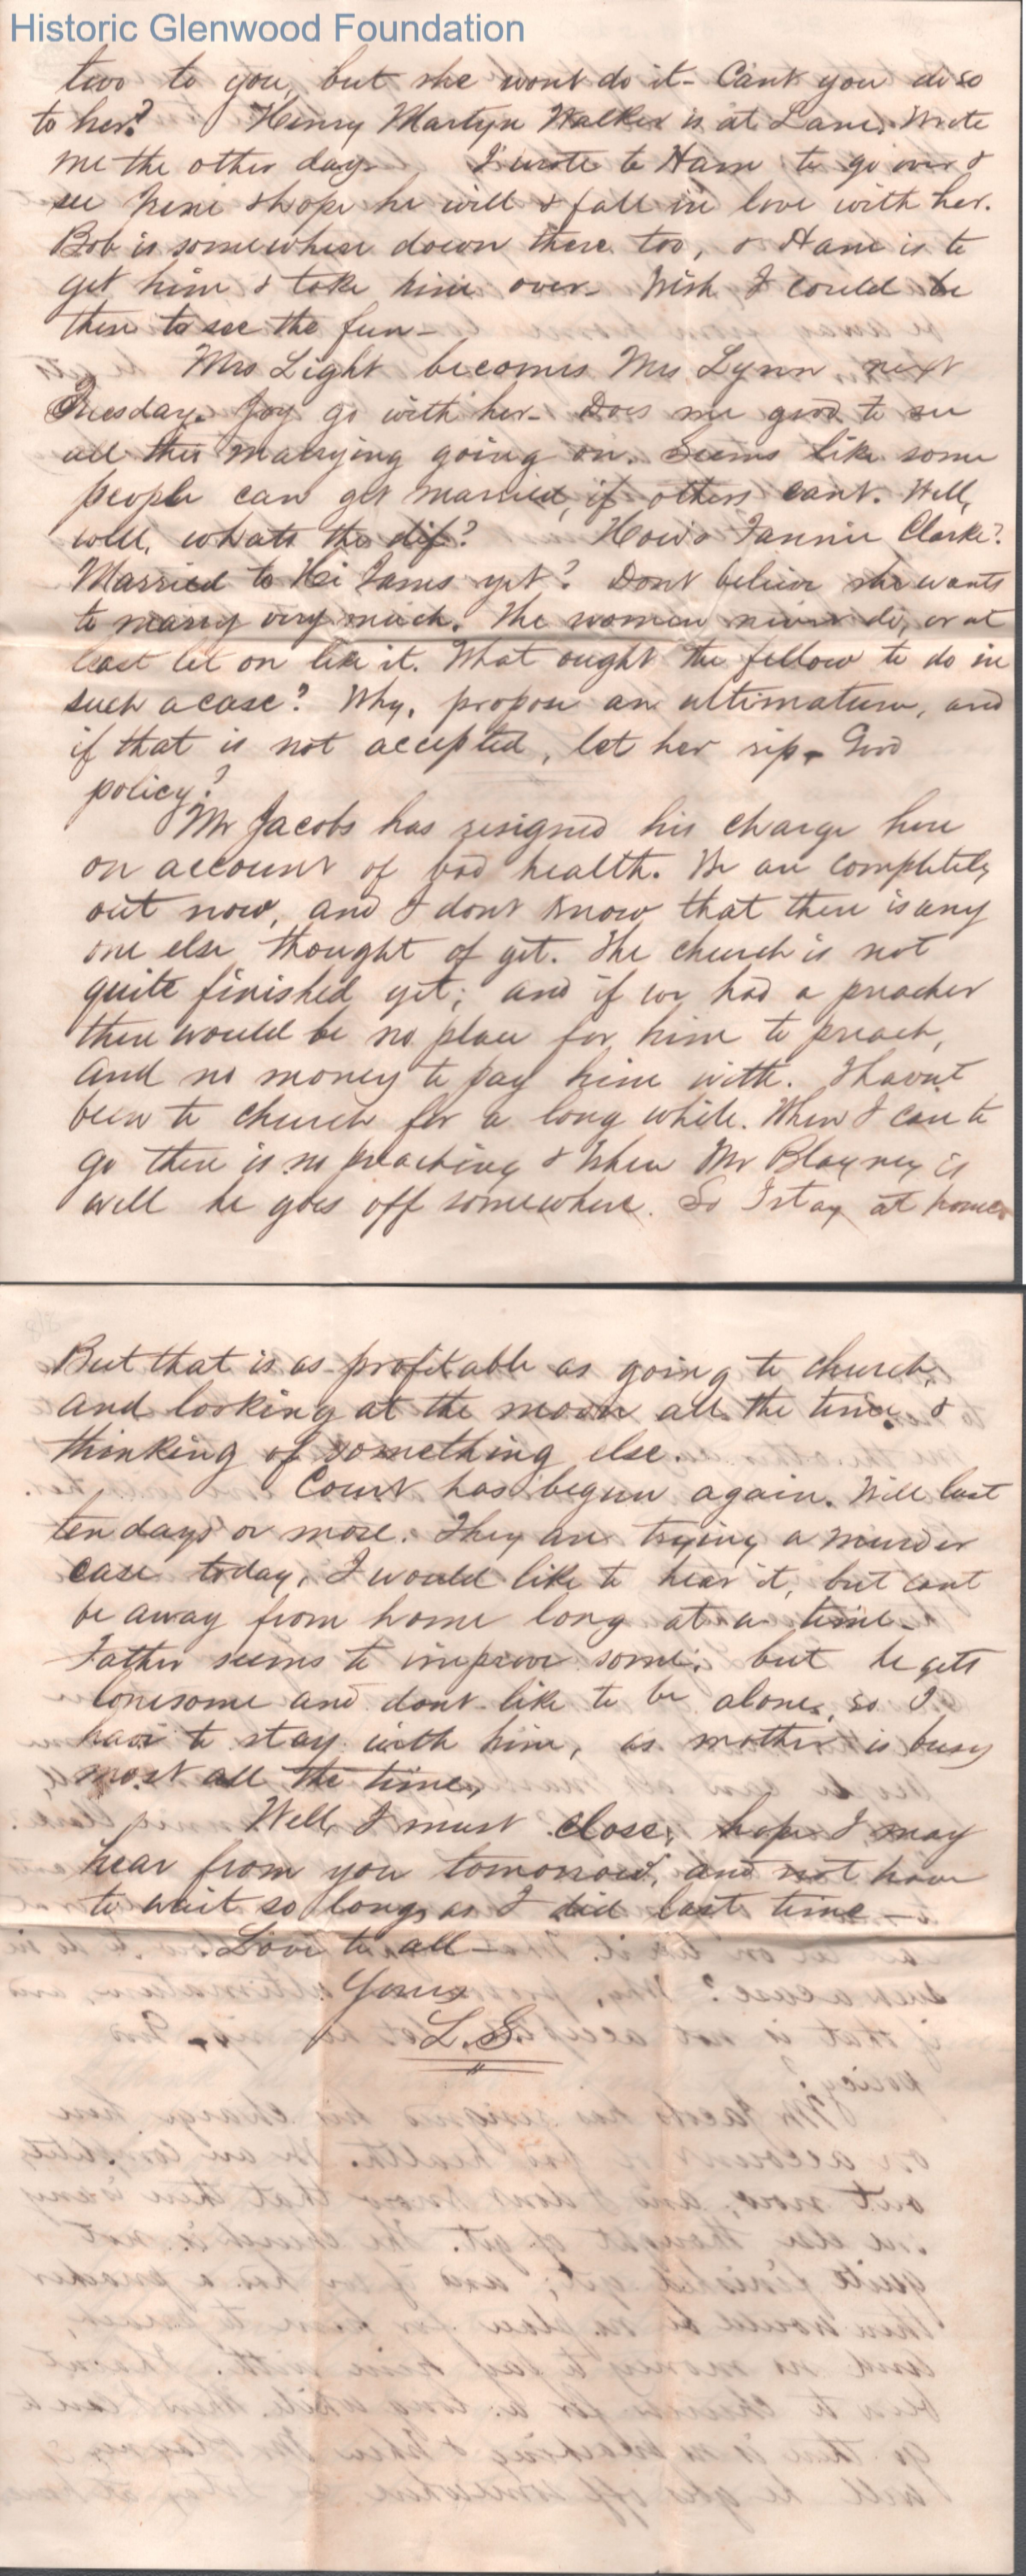 Historic Glenwood Foundation
two to you, but she wont do it - Cant you do so
to her? Henry Martyn Walker is at Lane. Wrote
me the other day. I wrote to Ham to go over &
see & hope he will & fall in love with her.
Bob is somewhere down there too, & Ham is to
get him & take him over - Wish I could be
there to see the fun -
Mrs Light becomes Mrs Lynn next
Tuesday. Joy go with her - Does me good to see
all this marrying going on. Seems like some
people can get married, if others cant. Well,
well, whats the dif? How's Fannie Clarke?
Married to yet? Dont believe she wants
to marry very much. The women never do, or at
least let on like it. What ought the fellow to do in
such a case? Why, propose an ultimatum, and
if that is not accepted, let her rip - Good
policy?
Mr Jacobs has resigned his charge here
on account of bad health. We are completely
out now, and I dont know that there is any
one else thought of yet. The church is not
quite finished yet; and if we had a preacher
there would be no place for him to preach,
and no money to pay him with. I havnt
been to church for a long while. When I care to
go there is no preaching & when Mr Blayney is
well he goes off somewhere. So I stay at home.
But that is as profitable as going to church,
and looking at the moon all the time, &
thinking of something else.
Court has begun again. Will last
ten days or more. They are trying a murder
case today, I would like to hear it, but cant
be away from home long at a time -
Father seems to improve some, but he gets
lonesome and dont like to be alone, so I
have to stay with him, as mother is busy
most all the time,
Well, I must close, hope I may
hear from you tomorrow, and not have
to wait so long as I did last time -
Love to all -
Yours
L. S.